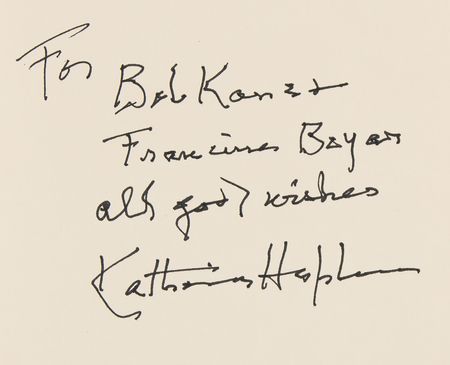 For Bob Kanet
Francine Bryan
all good wishes
Katharine Hepburn